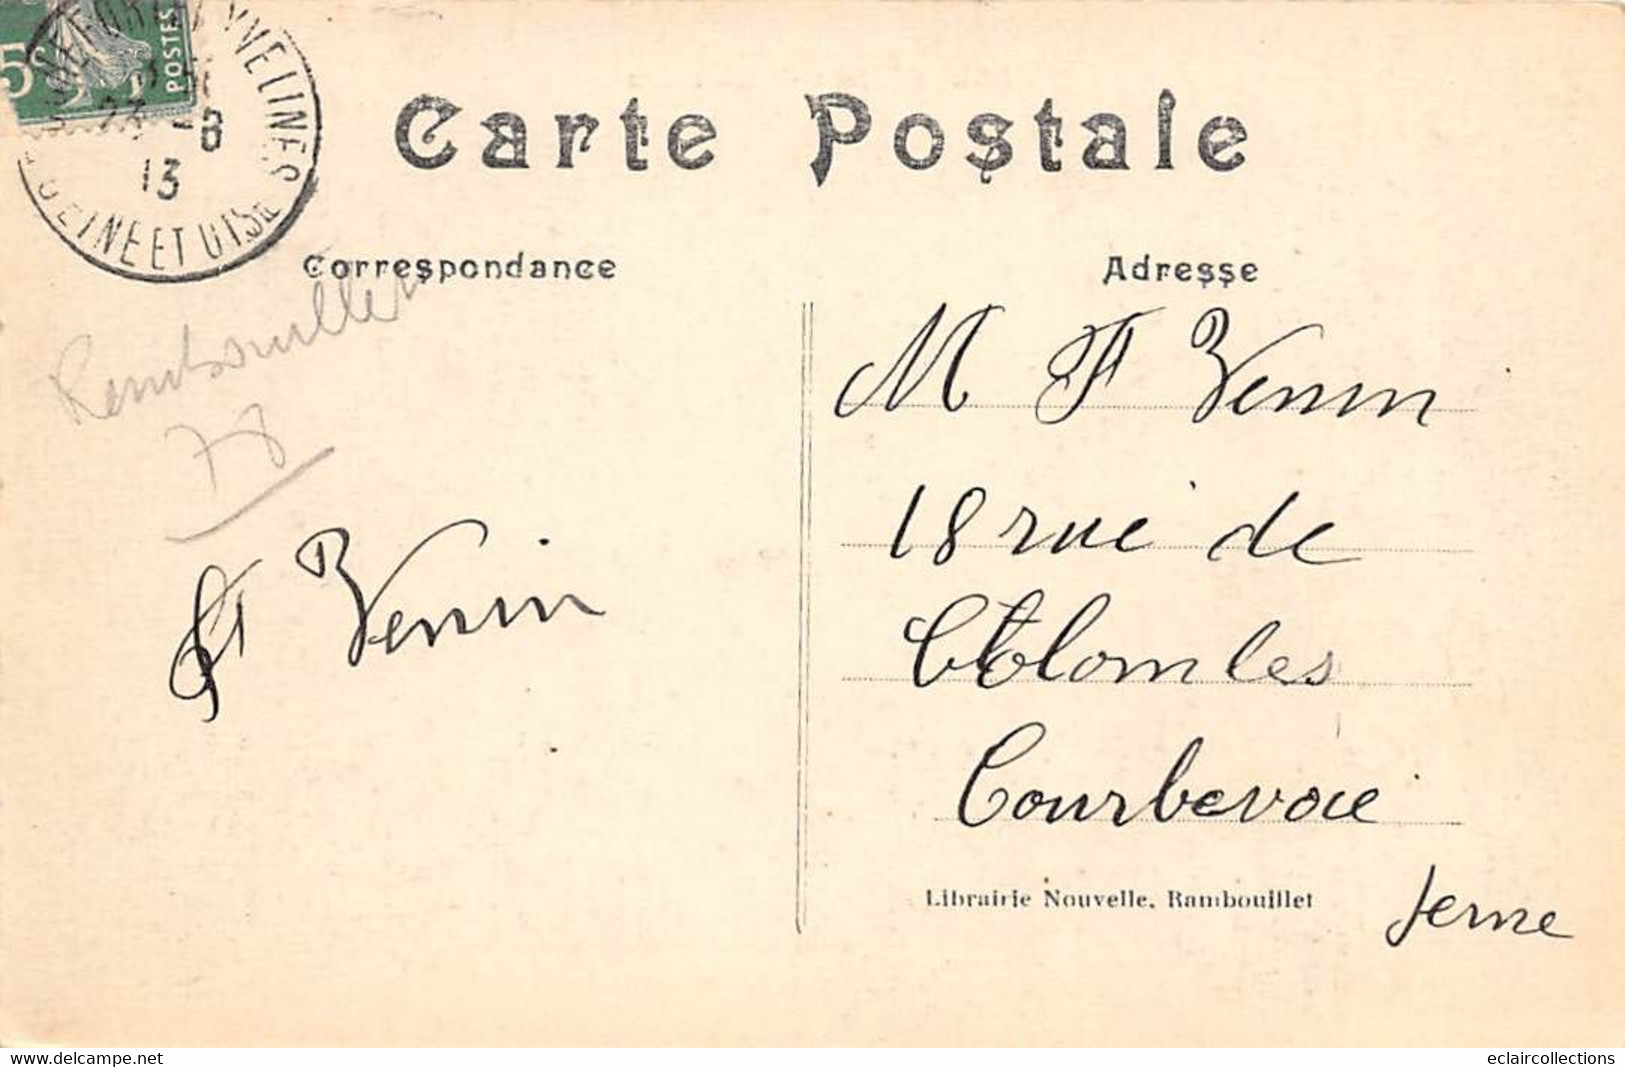 5c POSTES
YVELINES
13
SEINE ET OISE
Carte Postale
Correspondance
Adresse
Rambouillet
78
F Venin
M F Venin
18 rue de
Colombes
Courbevoie
Librairie Nouvelle, Rambouillet
www.delcampe.net
eclaircollections